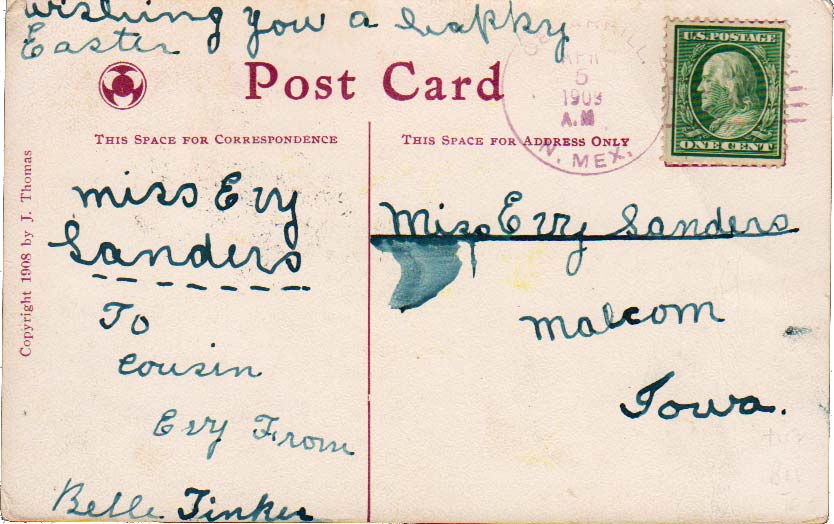 wishing you a happy
Easter
Post Card
THIS SPACE FOR CORRESPONDENCE
THIS SPACE FOR ADDRESS ONLY
Copyright 1908 by J. Thomas
Miss Evy
Sanders
To
Cousin
Evy From
Belle Tinker
CERRILL
APR
5
1909
A.M
N. MEX.
U.S. POSTAGE
ONE CENT
Miss Evy Sanders
Malcom
Iowa.